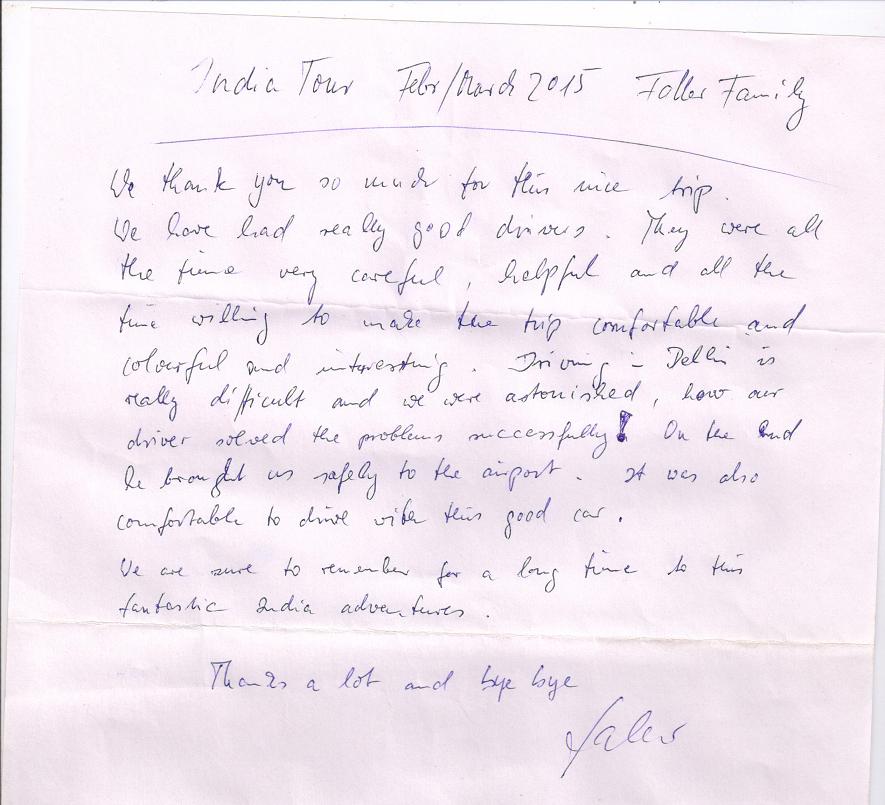 India Tour Febr/March 2015 Faller Family
We thank you so much for this nice trip.
We have had really good drivers. They were all
the time very careful, helpful and all the
time willing to make the trip comfortable and
colourful and interesting. Driving in Delhi is
really difficult and we were astonished, how our
driver solved the problems successfully! On the End
he brought us safely to the airport. It was also
comfortable to drive with this good car.
We are sure to remember for a long time to this
fantastic India adventures.
Thanks a lot and bye bye